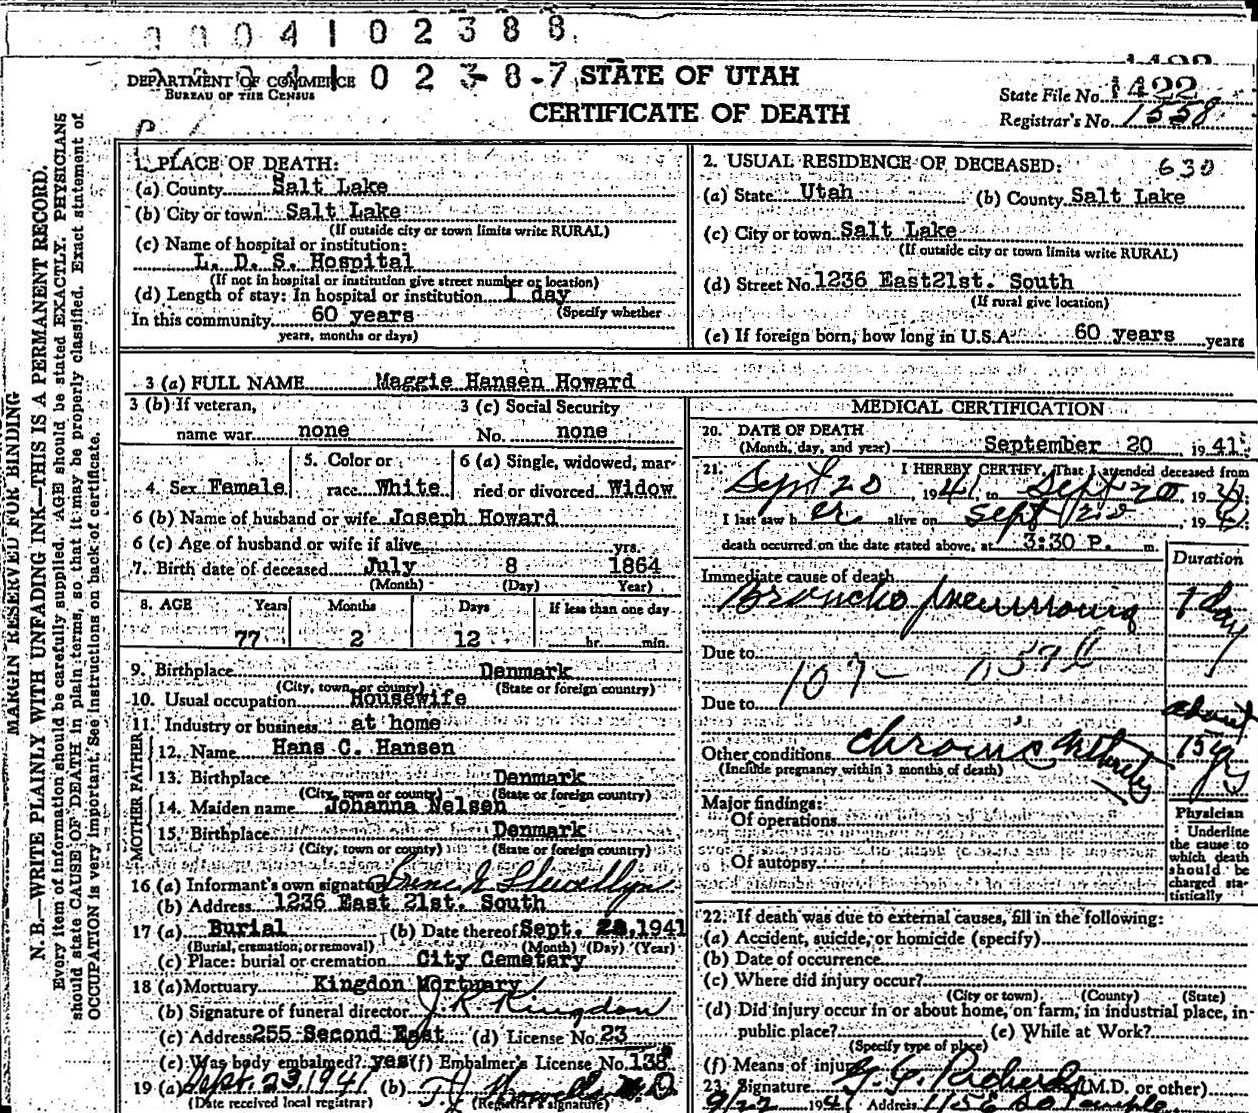 0004102388
DEPARTMENT OF COMMERCE
BUREAU OF THE CENSUS
STATE OF UTAH
CERTIFICATE OF DEATH
State File No. 1422
Registrar's No. 1558
MARGIN RESERVED FOR BINDING
N. B.—WRITE PLAINLY WITH UNFADING INK—THIS IS A PERMANENT RECORD.
Every item of information should be carefully supplied. AGE should be stated EXACTLY. PHYSICIANS
should state CAUSE OF DEATH in plain terms, so that it may be properly classified. Exact statement of
OCCUPATION is very important. See instructions on back of certificate.
1. PLACE OF DEATH:
(a) County Salt Lake
(b) City or town Salt Lake
(If outside city or town limits write RURAL)
(c) Name of hospital or institution:
L. D. S. Hospital
(If not in hospital or institution give street number or location)
(d) Length of stay: In hospital or institution 1 day
(Specify whether
In this community 60 years
years, months or days)
2. USUAL RESIDENCE OF DECEASED: 630
(a) State Utah (b) County Salt Lake
(c) City or town Salt Lake
(If outside city or town limits write RURAL)
(d) Street No. 1236 East21st. South
(If rural give location)
(e) If foreign born, how long in U.S.A. 60 years years
3 (a) FULL NAME Maggie Hansen Howard
3 (b) If veteran, 3 (c) Social Security
name war none No. none
4. Sex Female 5. Color or race White 6 (a) Single, widowed, married or divorced Widow
6 (b) Name of husband or wife Joseph Howard
6 (c) Age of husband or wife if alive yrs.
7. Birth date of deceased July 8 1864
(Month) (Day) Year)
8. AGE Years Months Days If less than one day
77 2 12 hr. min.
9. Birthplace Denmark
(City, town, or county) (State or foreign country)
10. Usual occupation Housewife
11. Industry or business at home
FATHER
12. Name Hans C. Hansen
13. Birthplace Denmark
(City, town or county) (State or foreign country)
MOTHER
14. Maiden name Johanna Nelsen
15. Birthplace Denmark
(City, town or county) (State or foreign country)
16 (a) Informant's own signature Llewellyn
(b) Address 1236 East 21st. South
17 (a) Burial (b) Date thereof Sept. ,1941
(Burial, cremation, or removal) (Month) (Day) (Year)
(c) Place: burial or cremation City Cemetery
18 (a) Mortuary Kingdon Mortuary
(b) Signature of funeral director J. R. Kingdon
(c) Address 255 Second East (d) License No. 23
(e) Was body embalmed? yes (f) Embalmer's License No. 138
19 (a) Sept. 23, 1941 (b) M.D.
(Date received local registrar) (Registrar's signature)
MEDICAL CERTIFICATION
20. DATE OF DEATH
(Month, day, and year) September 20 , 1941.
21. I HEREBY CERTIFY, That I attended deceased from
Sept 20 , 1941 to Sept 20 , 1941
I last saw h er alive on Sept 20 , 19
death occurred on the date stated above, at 3:30 P. m.
Duration
Immediate cause of death
Broncho pneumonia 1 day
Due to 107
Due to
about
Other conditions chronic 15 yrs
(Include pregnancy within 3 months of death)
Major findings:
Of operations
Of autopsy
Physician
Underline
the cause to
which death
should be
charged sta-
tistically
22. If death was due to external causes, fill in the following:
(a) Accident, suicide, or homicide (specify)
(b) Date of occurrence
(c) Where did injury occur?
(City or town) (County) (State)
(d) Did injury occur in or about home, on farm, in industrial place, in-
public place? (e) While at Work?
(Specify type of place)
(f) Means of injury
23. Signature G. G. Richards (M.D. or other)
9/22 1941 Address 115 E So Temple